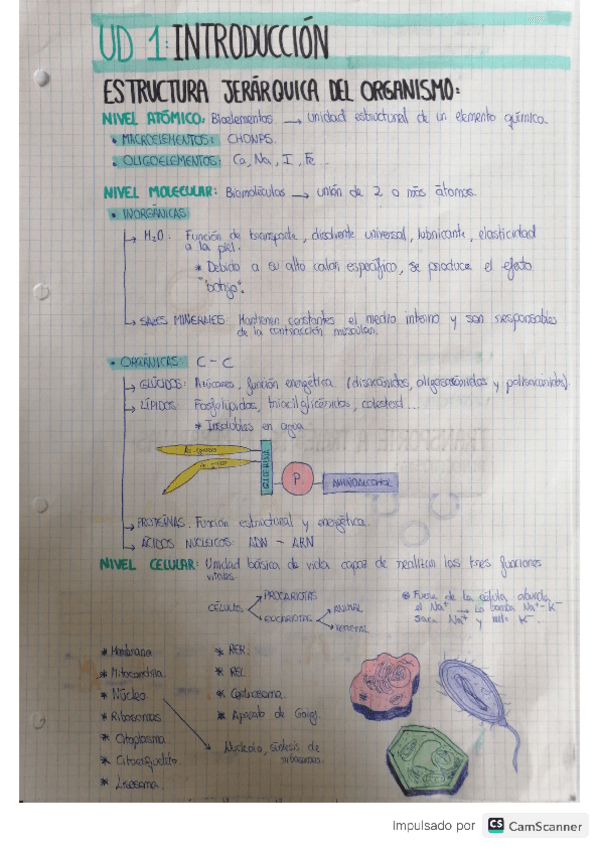 UD 1: INTRODUCCIÓN
ESTRUCTURA JERÁRQUICA DEL ORGANISMO:
NIVEL ATÓMICO: Bioelementos → unidad estructural de un elemento químico.
• MACROELEMENTOS: CHONPS.
• OLIGOELEMENTOS: Ca, Na, I, Fe...
NIVEL MOLECULAR: Biomoléculas → unión de 2 o más átomos.
• INORGÁNICAS
→ H2O: Función de transporte, disolvente universal, lubricante, elasticidad
a la piel.
* Debido a su alto calor específico, se produce el efecto
"botijo".
→ SALES MINERALES: Mantienen constantes el medio interno y son responsables
de la contracción muscular.
• ORGÁNICAS: C-C
→ GLÚCIDOS: Azúcares, función energética. (disacáridos, oligosacáridos y polisacáridos).
→ LÍPIDOS: Fosfolípidos, triacilglicéridos, colesterol...
* Insolubles en agua
Ac. graso
Ac. graso
GLICERINA
P
AMINOALCOHOL
→ PROTEÍNAS: Función estructural y energética.
→ ÁCIDOS NUCLEICOS: ADN - ARN
NIVEL CELULAR: Unidad básica de vida capaz de realizar las tres funciones
vitales.
CÉLULAS
PROCARIOTAS
EUCARIOTAS
ANIMAL
VEGETAL
Fuera de la célula abunda
el Na+ → La bomba Na+-K-
saca Na+ y K-...
* Membrana
* Mitocondria.
* Núcleo.
* Ribosomas
* Citoplasma.
* Citoesqueleto.
* Lisosoma.
* RER.
* REL.
* Centrosoma.
* Aparato de Golgi.
Nucleolo, síntesis de
ribosomas.
Impulsado por CS CamScanner